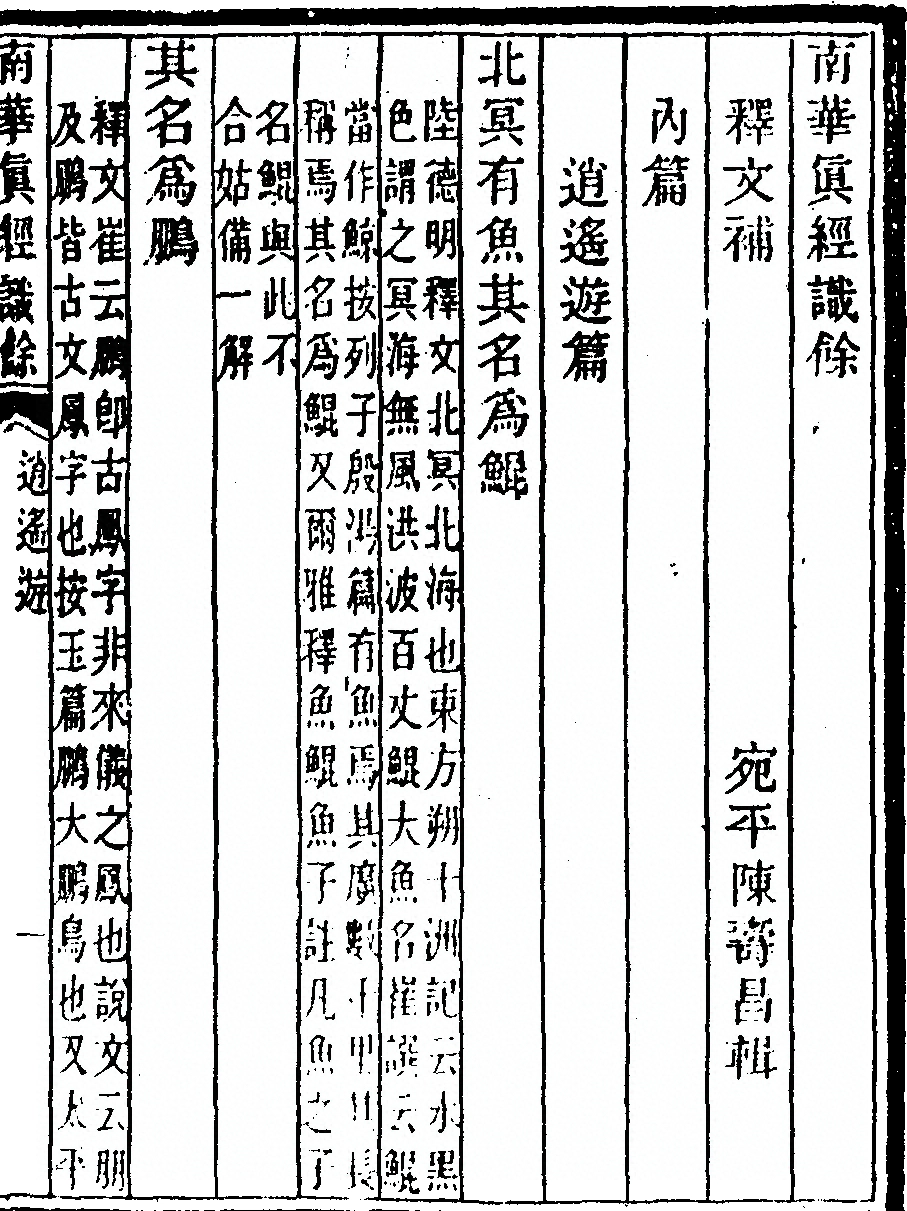 南華眞經識餘
釋文補
宛平陳壽昌輯
內篇
逍遙遊篇
北冥有魚其名爲鯤
陸德明釋文北冥北海也東方朔十洲記云水黑
色謂之冥海無風洪波百丈鯤大魚名崔譔云鯤
當作鯨按列子殷湯篇有魚焉其廣數千里其長
稱焉其名爲鯤又爾雅釋魚鯤魚子註凡魚之子
名鯤與此不
合姑備一解
其名爲鵬
釋文崔云鵬卽古鳳字非來儀之鳳也說文云朋
及鵬皆古文鳳字也按玉篇鵬大鵬鳥也又太平
南華眞經識餘
逍遙遊
一